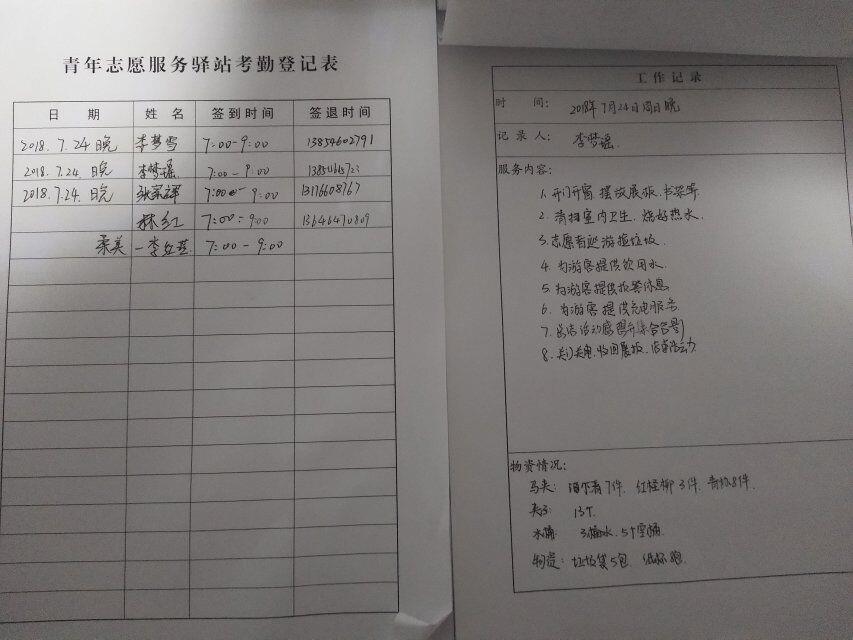 青年志愿服务驿站考勤登记表
日 期 姓 名 签到时间 签退时间
2018.7.24晚 李梦雪 7:00-9:00 13854602791
2018.7.24.晚 李梦瑶 7:00-9:00
2018.7.24.晚 7:00-9:00 13176608767
林红 7:00-9:00 13646470809
柔美一李 7:00-9:00
工作记录
时 间: 2018年7月24日 晚
记录人: 李梦瑶
服务内容:
1. 开门开窗 摆放展板、书架等
2. 清扫室内卫生、烧好热水、
3. 志愿者巡游捡垃圾
4. 为游客提供饮用水.
5. 为游客提供报答休息
6. 为游客提供充电服务.
7. 总结活动
8. 关门关电、收回展板、
物资情况:
马夹: 7件. 红柽柳3件. 8件.
夹子: 13个.
水桶: 3桶水、5个空桶.
物资: 垃圾袋5包. 纸杯